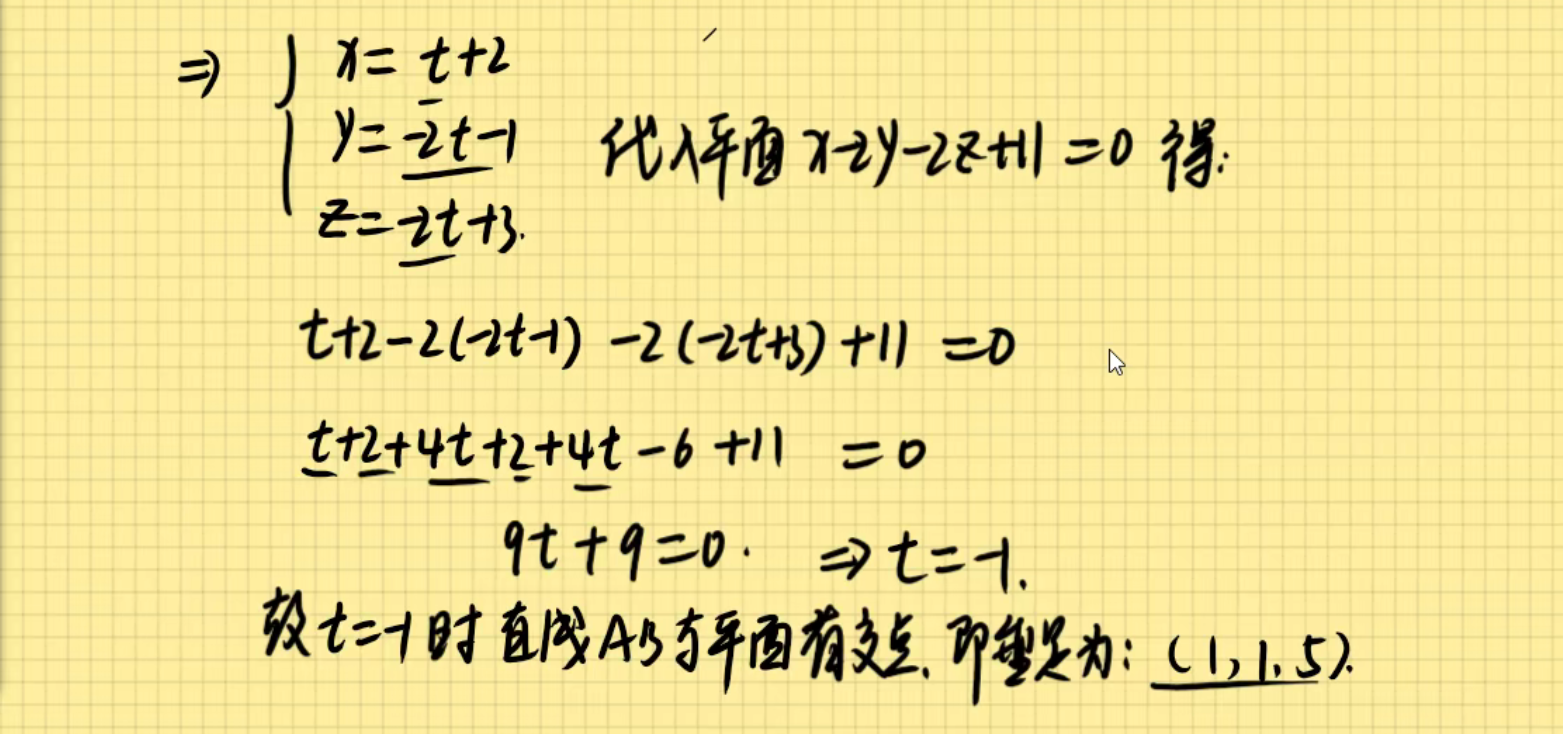 ⇒ { x = t+2
y = -2t-1 代入平面 x-2y-2z+11=0 得:
z = -2t+3.
t+2-2(-2t-1) -2(-2t+3)+11 =0
t+2+4t+2+4t-6+11 =0
9t+9=0. ⇒ t=-1.
故t=-1时 直线AB与平面有交点. 即垂足为: (1,1,5).